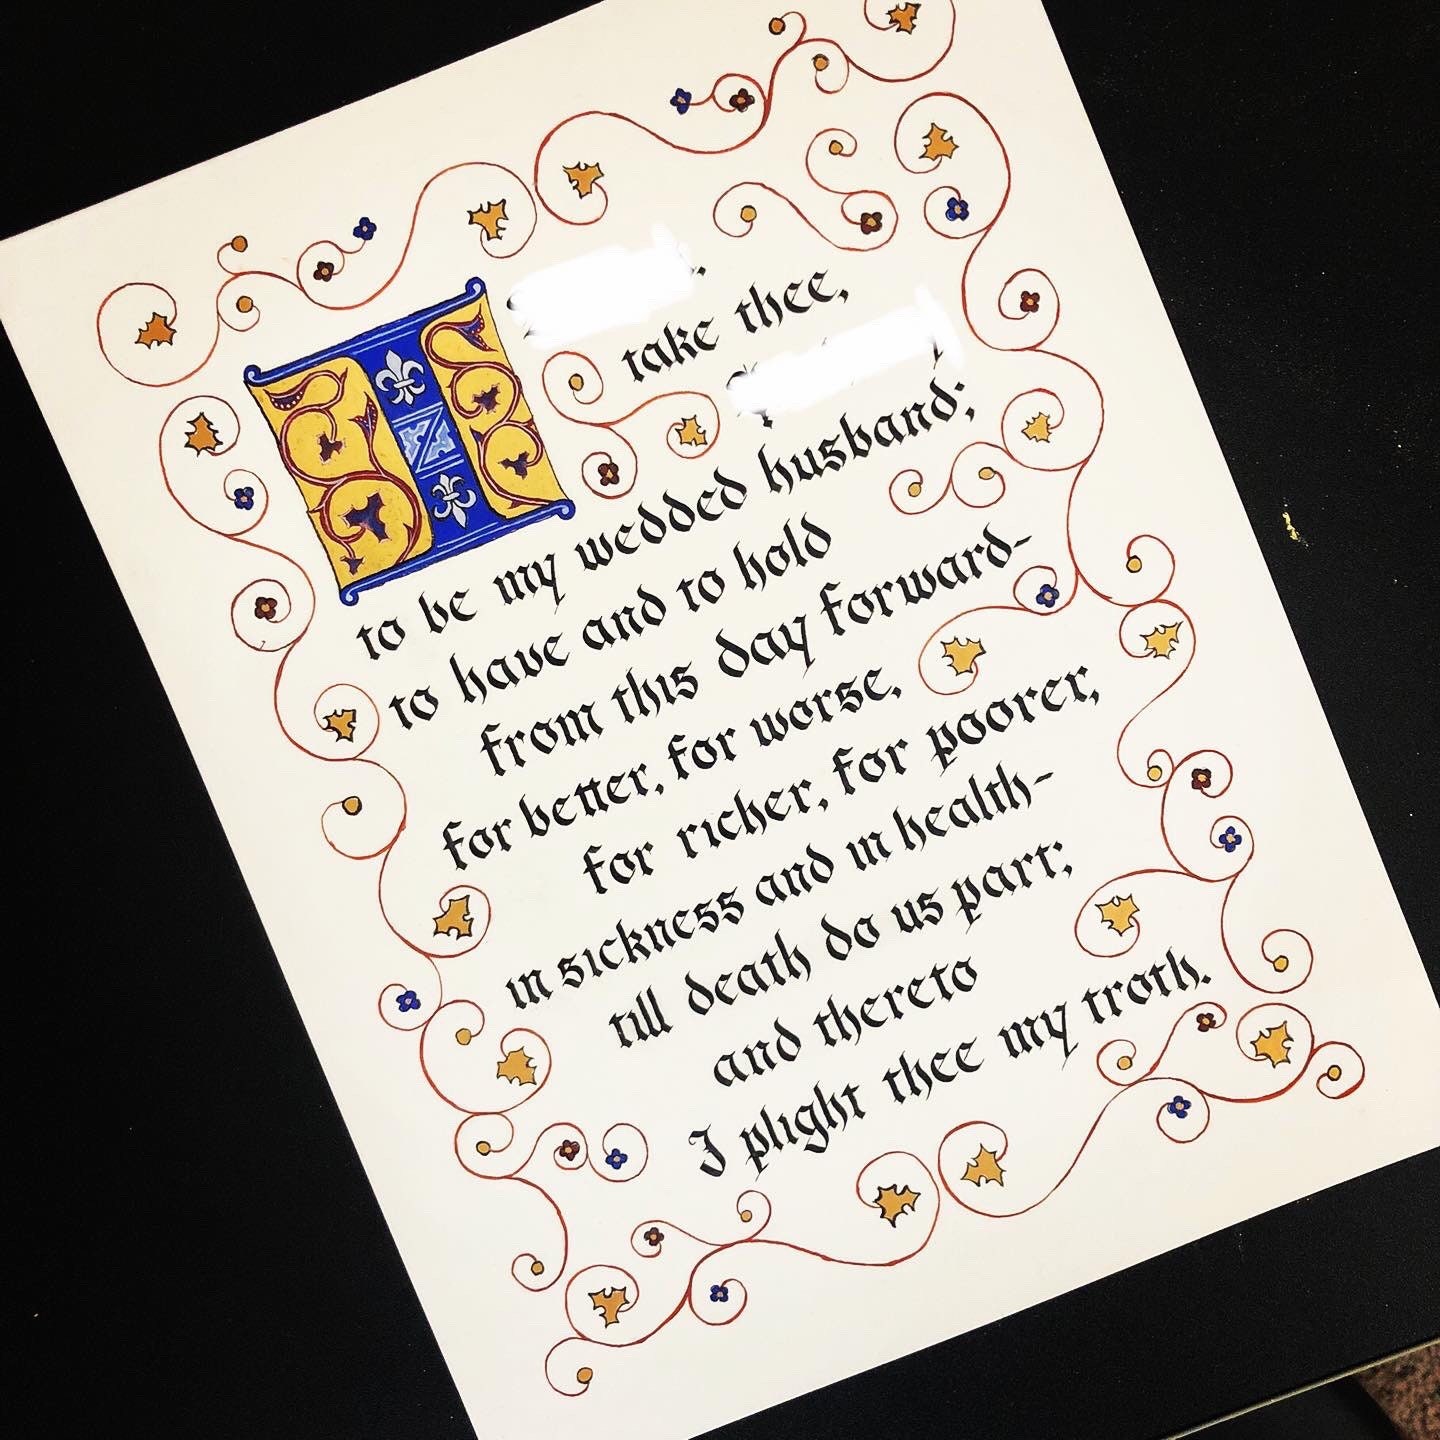 I
Z
take thee,
to be my wedded husband;
to have and to hold
from this day forward-
for better, for worse,
for richer, for poorer,
in sickness and in health-
till death do us part;
and thereto
I plight thee my troth.